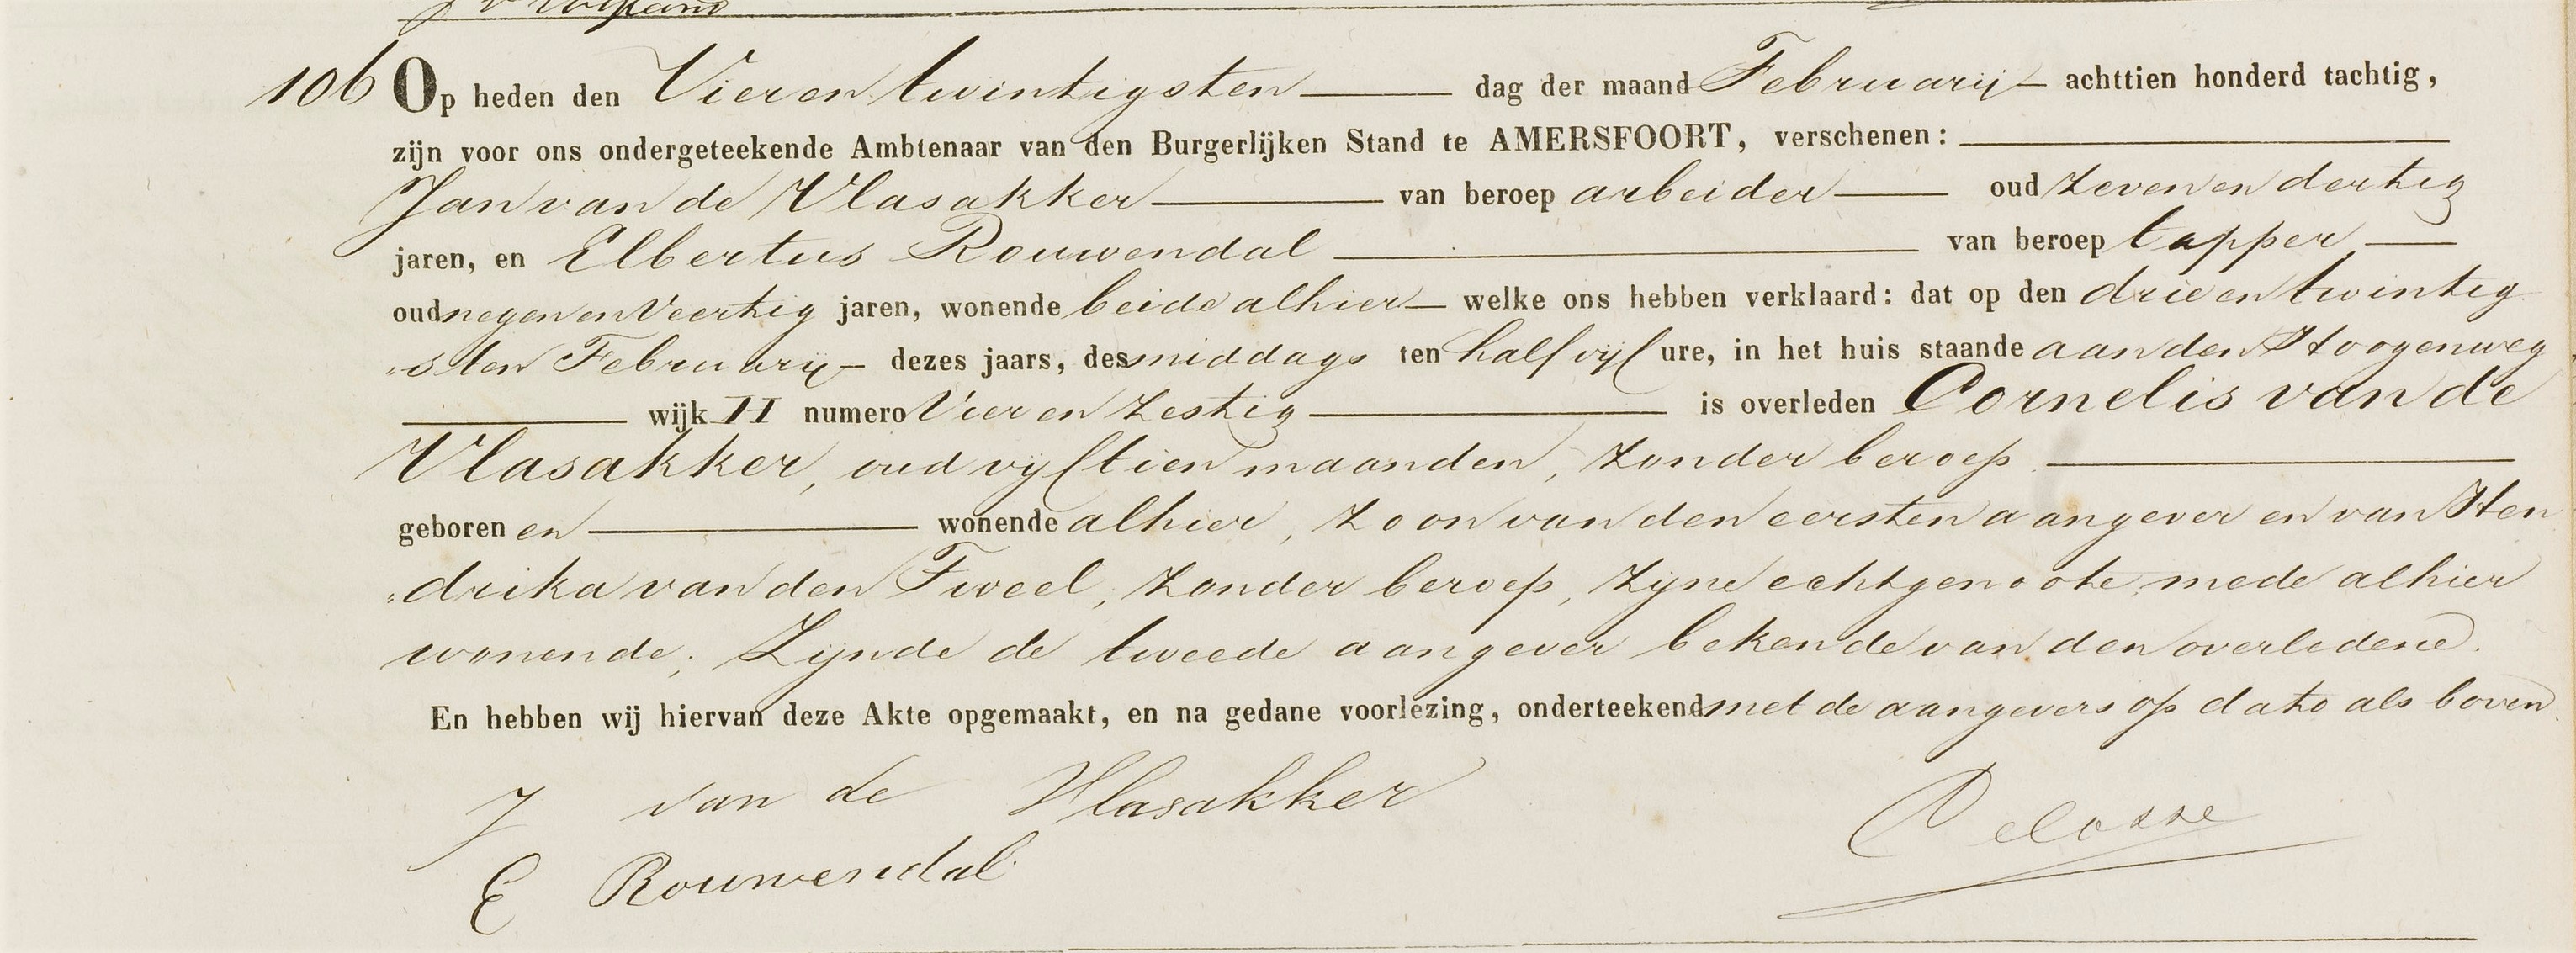 106 Op heden den Vier en twintigsten dag der maand Februarij achttien honderd tachtig,
zijn voor ons ondergeteekende Ambtenaar van den Burgerlijken Stand te AMERSFOORT, verschenen:
Jan van de Vlasakker van beroep arbeider oud zeven en dertig
jaren, en Elbertus Rouwendal van beroep tapper
oud negen en Veertig jaren, wonende beide alhier welke ons hebben verklaard: dat op den drie en twintig
"sten Februarij dezes jaars, des middags ten half vijf ure, in het huis staande aan den Hoogenweg
wijk H numero Vier en zestig is overleden Cornelis van de
Vlasakker, oud vijftien maanden, zonder beroep
geboren en wonende alhier, zoon van den eersten aangever en van Hen
"drika van den Tweel, zonder beroep, zijne echtgenoote mede alhier
wonende; Zijnde de tweede aangever bekende van den overledene.
En hebben wij hiervan deze Akte opgemaakt, en na gedane voorlezing, onderteekend met de aangevers op dato als boven.
J van de Vlasakker
E Rouwendal